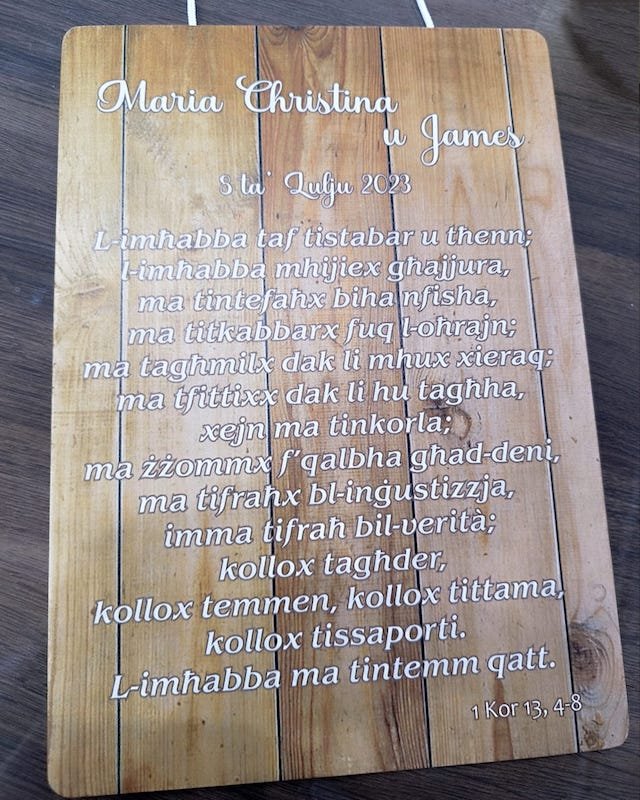 Maria Christina
u James
8 ta' Lulju 2023
L-imħabba taf tistabar u tħenn;
l-imħabba mhijiex għajjura,
ma tintefaħx biha nfisha,
ma titkabbarx fuq l-oħrajn;
ma tagħmilx dak li mhux xieraq;
ma tfittixx dak li hu tagħha,
xejn ma tinkorla;
ma żżommx f'qalbha għad-deni,
ma tifraħx bl-inġustizzja,
imma tifraħ bil-verità;
kollox tagħder,
kollox temmen, kollox tittama,
kollox tissaporti.
L-imħabba ma tintemm qatt.
1 Kor 13, 4-8